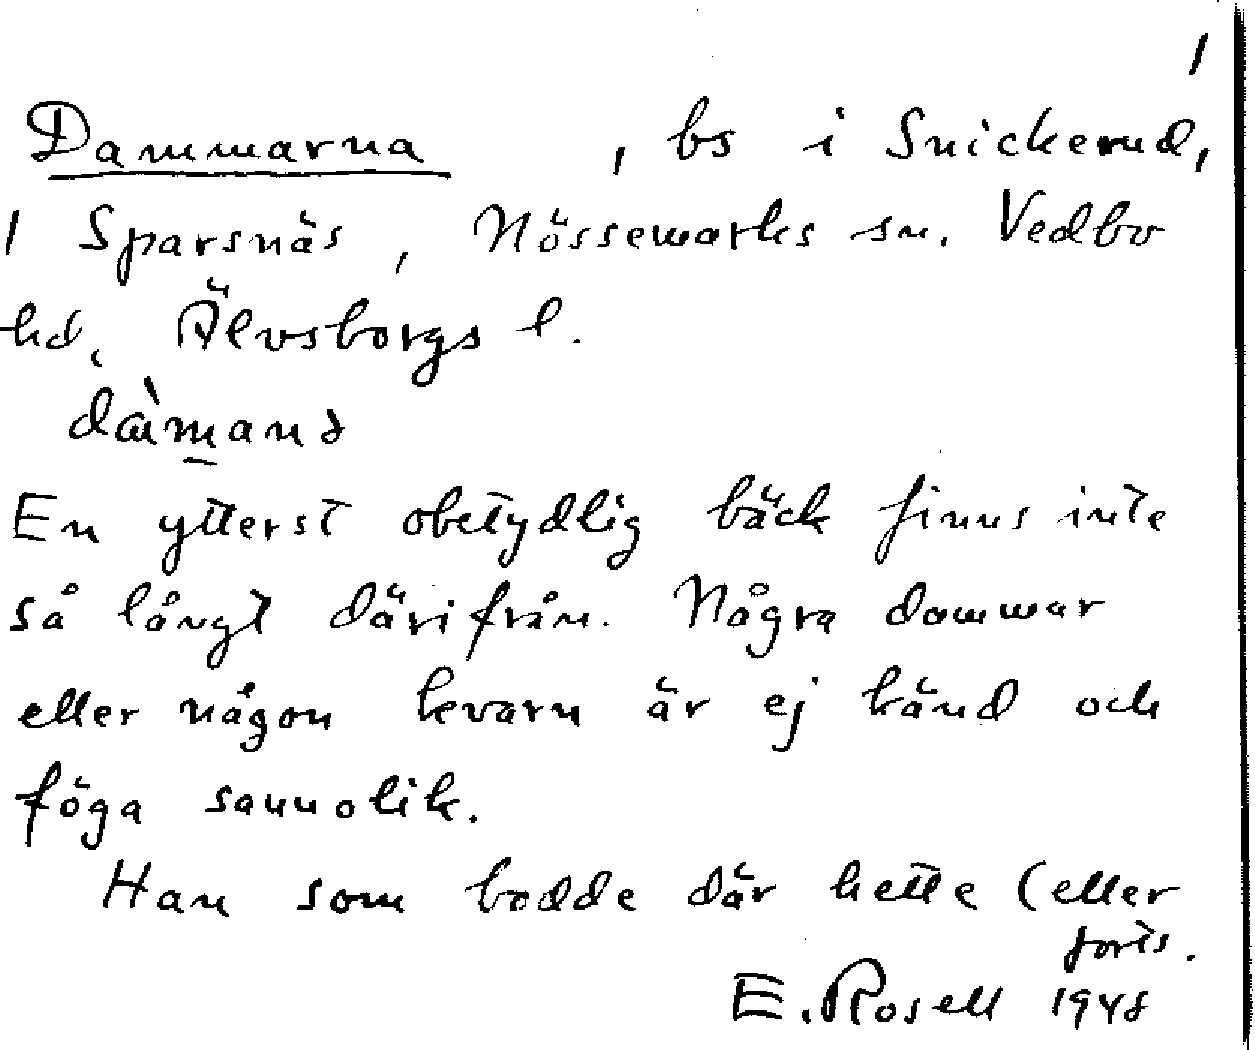 1
Dammarna , bs i Snickerud,
1 Sparsnäs, Nössemarks sn. Vedbo
hd, Älvsborgs l.
En ytterst obetydlig bäck finns inte
så långt därifrån. Några dammar
eller någon kvarn är ej känd och
föga sannolik.
Han som bodde där hette (eller
forts.
E. Rosell 1948